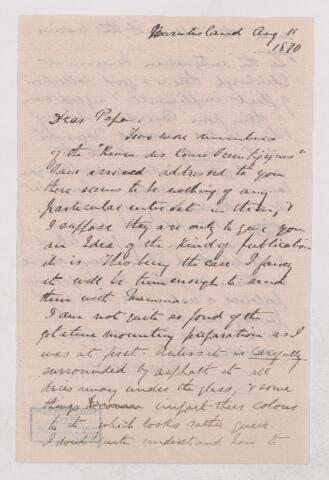 Burntisland Aug 11
1870
Dear Papa.
Two more numbers
of the "Revue des Cours Scientifiques"
have arrived addressed to you
there seems to be nothing of any
particular interest in them, &
I suppose they are only to give you
an Idea of the kind of publication
it is. This being the case I fancy
it will be time enough to send
them with Mamma.
I am not quite so fond of the
gelatine mounting preparation as I
was at first. Unless it is carefully
surrounded by asphalt it all
dries away under the glass, & some
things impart their colour
to it, which looks rather queer.
I don't quite understand how to